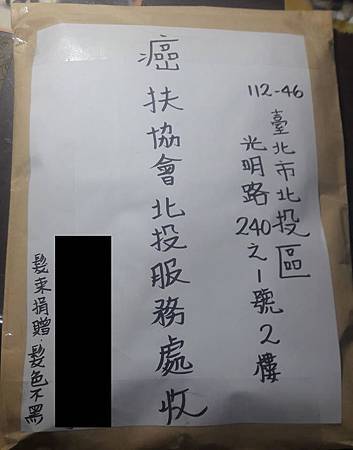 112-46
臺北市北投區
光明路240之1號2樓
癌扶協會北投服務處收
髮束捐贈.髮色不黑